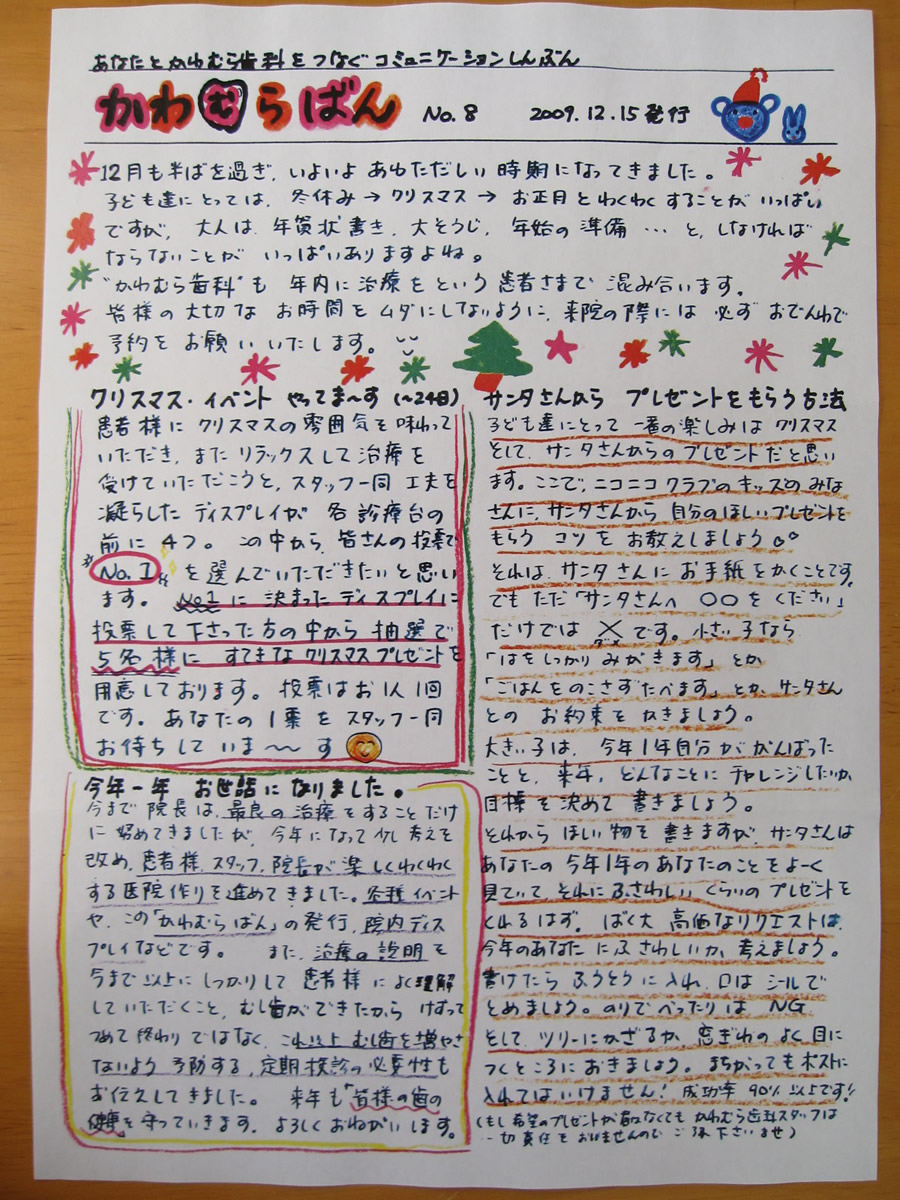 あなたとかわむら歯科をつなぐコミュニケーションしんぶん
かわむらばん No.8 2009.12.15発行
12月も半ばを過ぎ、いよいよあわただしい時期になってきました。
子ども達にとっては、冬休み→クリスマス→お正月とわくわくすることがいっぱい
ですが、大人は、年賀状書き、大そうじ、年始の準備…と、しなければ
ならないことがいっぱいありますよね。
"かわむら歯科"も年内に治療をという患者さまで混み合います。
皆様の大切なお時間をムダにしないように、来院の際には必ずおでんわで
予約をお願いいたします。
クリスマス・イベントやってま〜す(〜24日)
患者様にクリスマスの雰囲気を味わって
いただき、またリラックスして治療を
受けていただこうと、スタッフ一同工夫を
凝らしたディスプレイが各診療台の
前に4つ。この中から、皆さんの投票で
No.1を選んでいただきたいと思い
ます。No.1に決まったディスプレイに
投票して下さった方の中から抽選で
5名様にすてきなクリスマスプレゼントを
用意しております。投票はお1人1回
です。あなたの1票をスタッフ一同
お待ちしていま〜〜す
今年一年お世話になりました。
今まで院長は、最良の治療をすることだけ
に努めてきましたが、今年になって少し考えを
改め、患者様、スタッフ、院長が楽しくわくわく
する医院作りを進めてきました。各種イベント
や、この「かわむらばん」の発行、院内ディス
プレイなどです。また、治療の説明を
今まで以上にしっかりして患者様によく理解
していただくこと、むし歯ができたからけずって
つめて終わりではなく、これ以上むし歯を増やさ
ないよう予防する、定期検診の必要性も
お伝えしてきました。来年も「皆様の歯の
健康を守っていきます。よろしくおねがいします。
サンタさんからプレゼントをもらう方法
子ども達にとって一番の楽しみはクリスマス
そして、サンタさんからのプレゼントだと思い
ます。ここで、ニコニコクラブのキッズのみな
さんに、サンタさんから自分のほしいプレゼントを
もらうコツをお教えしましょう
それは、サンタさんにお手紙をかくことです。
でもただ「サンタさんへ ○○をください」
だけでは×ダメです。小さい子なら
「はをしっかりみがきます」とか
「ごはんをのこさずたべます」とか、サンタさん
とのお約束をかきましょう。
大きい子は、今年1年自分ががんばった
ことと、来年、どんなことにチャレンジしたいか、
目標を決めて書きましょう。
それからほしい物を書きますが、サンタさんは
あなたの今年1年のあなたのことをよーく
見ていて、それにふさわしいくらいのプレゼントを
くれるはず。ばく大高価なリクエストは、
今年のあなたにふさわしいか、考えましょう。
書けたらふうとうに入れ、口はシールで
とめましょう。のりでべったりはNG
そして、ツリーにかざるか、窓ぎわのよく目に
つくところにおきましょう。まちがってもポストに
入れてはいけません!成功率90%以上です!!
(もし希望のプレゼントが届かなくてもかわむら歯科スタッフは
一切責任をおいませんのでご了承下さいませ)